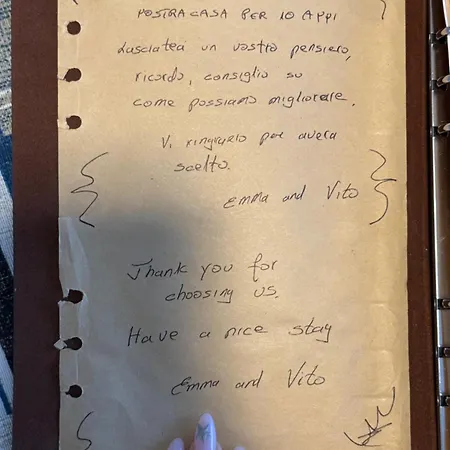 POSTRA CASA PER 10 APPI
Lasciatea un vostro pensiero,
ricordo, consiglio su
come possiamo migliorare.
Vi ringrazio per averci
scelto.
Emma and Vito
Thank you for
choosing us.
Have a nice stay
Emma and Vito